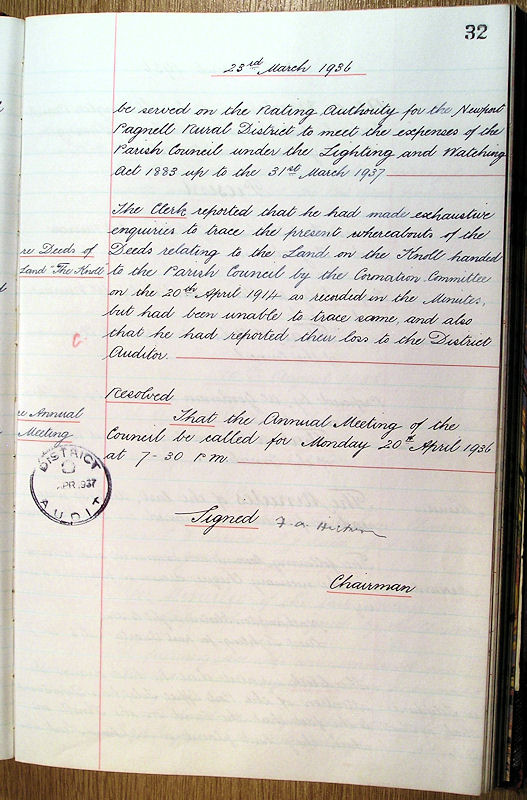 32
23rd March 1936
be served on the Rating Authority for the Newport
Pagnell Rural District to meet the expenses of the
Parish Council under the Lighting and Watching
Act 1833 up to the 31st March 1937
The Clerk reported that he had made exhaustive
enquiries to trace the present whereabouts of the
re Deeds of
Land The Knoll
Deeds relating to the Land on the Knoll handed
to the Parish Council by the Coronation Committee
on the 20th April 1914 as recorded in the Minutes,
but had been unable to trace same, and also
that he had reported their loss to the District
Auditor.
Resolved
re Annual
Meeting
That the Annual Meeting of the
Council be called for Monday 20th April 1936
at 7-30 PM
DISTRICT
APR.1937
AUDIT
Signed F. A.
Chairman